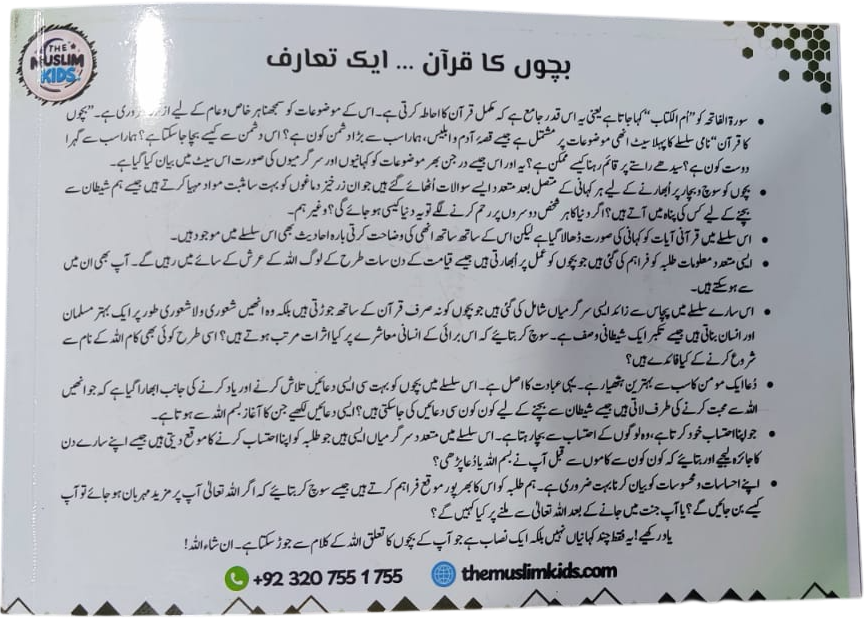 THE
MUSLIM
KIDS
بچوں کا قرآن ... ایک تعارف
سورۃ الفاتحہ کو "اُم الکتاب" کہا جاتا ہے یعنی یہ اس قدر جامع ہے کہ مکمل قرآن کا احاطہ کرتی ہے۔ اس کے موضوعات کو سمجھنا ہر خاص و عام کے لیے از حد ضروری ہے۔ "بچوں
کا قرآن" نامی سلسلے کا پہلا سیٹ انھی موضوعات پر مشتمل ہے جیسے قصۂ آدم و ابلیس، ہمارا سب سے بڑا دشمن کون ہے؟ اس دشمن سے کیسے بچا جا سکتا ہے؟ ہمارا سب سے گہرا
دوست کون ہے؟ سیدھے راستے پر قائم رہنا کیسے ممکن ہے؟ یہ اور اس جیسے درجن بھر موضوعات کو کہانیوں اور سرگرمیوں کی صورت اس سیٹ میں بیان کیا گیا ہے۔
بچوں کو سوچ و بچار پر اُبھارنے کے لیے ہر کہانی کے متصل بعد متعدد ایسے سوالات اُٹھائے گئے ہیں جو ان زرخیز دماغوں کو بہت سا مثبت مواد مہیا کرتے ہیں جیسے ہم شیطان سے
بچنے کے لیے کس کی پناہ میں آتے ہیں؟ اگر دنیا کا ہر شخص دوسروں پر رحم کرنے لگے تو یہ دنیا کیسی ہو جائے گی؟ وغیرہم۔
اس سلسلے میں قرآنی آیات کو کہانی کی صورت ڈھالا گیا ہے لیکن اس کے ساتھ ساتھ انھی کی وضاحت کرتی بارہ احادیث بھی اس سلسلے میں موجود ہیں۔
ایسی متعدد معلومات طلبہ کو فراہم کی گئی ہیں جو بچوں کو عمل پر اُبھارتی ہیں جیسے قیامت کے دن سات طرح کے لوگ اللہ کے عرش کے سائے میں رہیں گے۔ آپ بھی ان میں
سے ہو سکتے ہیں۔
اس سارے سلسلے میں پچاس سے زائد ایسی سرگرمیاں شامل کی گئی ہیں جو بچوں کو نہ صرف قرآن کے ساتھ جوڑتی ہیں بلکہ وہ انھیں شعوری و لا شعوری طور پر ایک بہتر مسلمان
اور انسان بناتی ہیں جیسے تکبر ایک شیطانی وصف ہے۔ سوچ کر بتائیے کہ اس برائی کے انسانی معاشرے پر کیا اثرات مرتب ہوتے ہیں؟ اسی طرح کوئی بھی کام اللہ کے نام سے
شروع کرنے کے کیا فائدے ہیں؟
دُعا ایک مومن کا سب سے بہترین ہتھیار ہے۔ یہی عبادت کا اصل ہے۔ اس سلسلے میں بچوں کو بہت سی ایسی دعائیں تلاش کرنے اور یاد کرنے کی جانب ابھارا گیا ہے کہ جو انھیں
اللہ سے محبت کرنے کی طرف لاتی ہیں جیسے شیطان سے بچنے کے لیے کون کون سی دعائیں کی جا سکتی ہیں؟ ایسی دعائیں لکھیے جن کا آغاز بسم اللہ سے ہوتا ہے۔
جو اپنا احتساب خود کرتا ہے، وہ لوگوں کے احتساب سے بچا رہتا ہے۔ اس سلسلے میں متعدد سرگرمیاں ایسی ہیں جو طلبہ کو اپنا احتساب کرنے کا موقع دیتی ہیں جیسے اپنے سارے دن
کا جائزہ لیجیے اور بتائیے کہ کون کون سے کاموں سے قبل آپ نے بسم اللہ یا دعا پڑھی؟
اپنے احساسات و محسوسات کو بیان کرنا بہت ضروری ہے۔ ہم طلبہ کو اس کا بھرپور موقع فراہم کرتے ہیں جیسے سوچ کر بتائیے کہ اگر اللہ تعالیٰ آپ پر مزید مہربان ہو جائے تو آپ
کیسے بن جائیں گے؟ یا آپ جنت میں جانے کے بعد اللہ تعالیٰ سے ملنے پر کیا کہیں گے؟
یاد رکھیے! یہ فقط چند کہانیاں نہیں بلکہ ایک نصاب ہے جو آپ کے بچوں کا تعلق اللہ کے کلام سے جوڑ سکتا ہے۔ ان شاء اللہ!
+92 320 755 1 755 themuslimkids.com